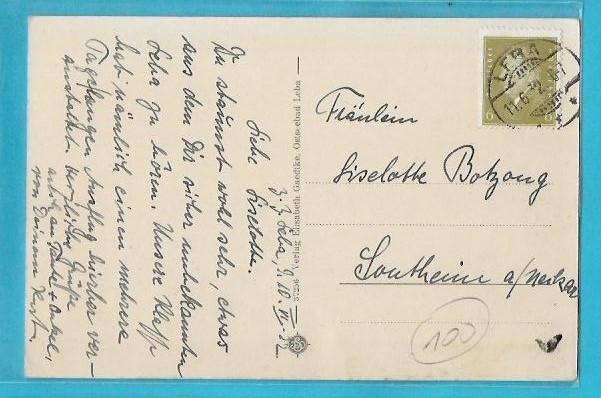 z. Z. Leba, 9.10. VI. 32
Liebe Liselotte.
Du staunst wohl sehr, etwas
aus dem Dir sicher unbekannten
Leba zu hören. Unsere Klasse
hat nämlich einen mehrere
Tage langen Ausflug hierher ver-
anstaltet. Herzliche Grüße
auch an Tante + Onkel,
von Deinem Kurt.
37256 Verlag Elisabeth Gaedtke, Ostseebad Leba
LEBA
11.6.32
6 6
Fräulein
Liselotte Botzong
Sontheim a/Neckar
100